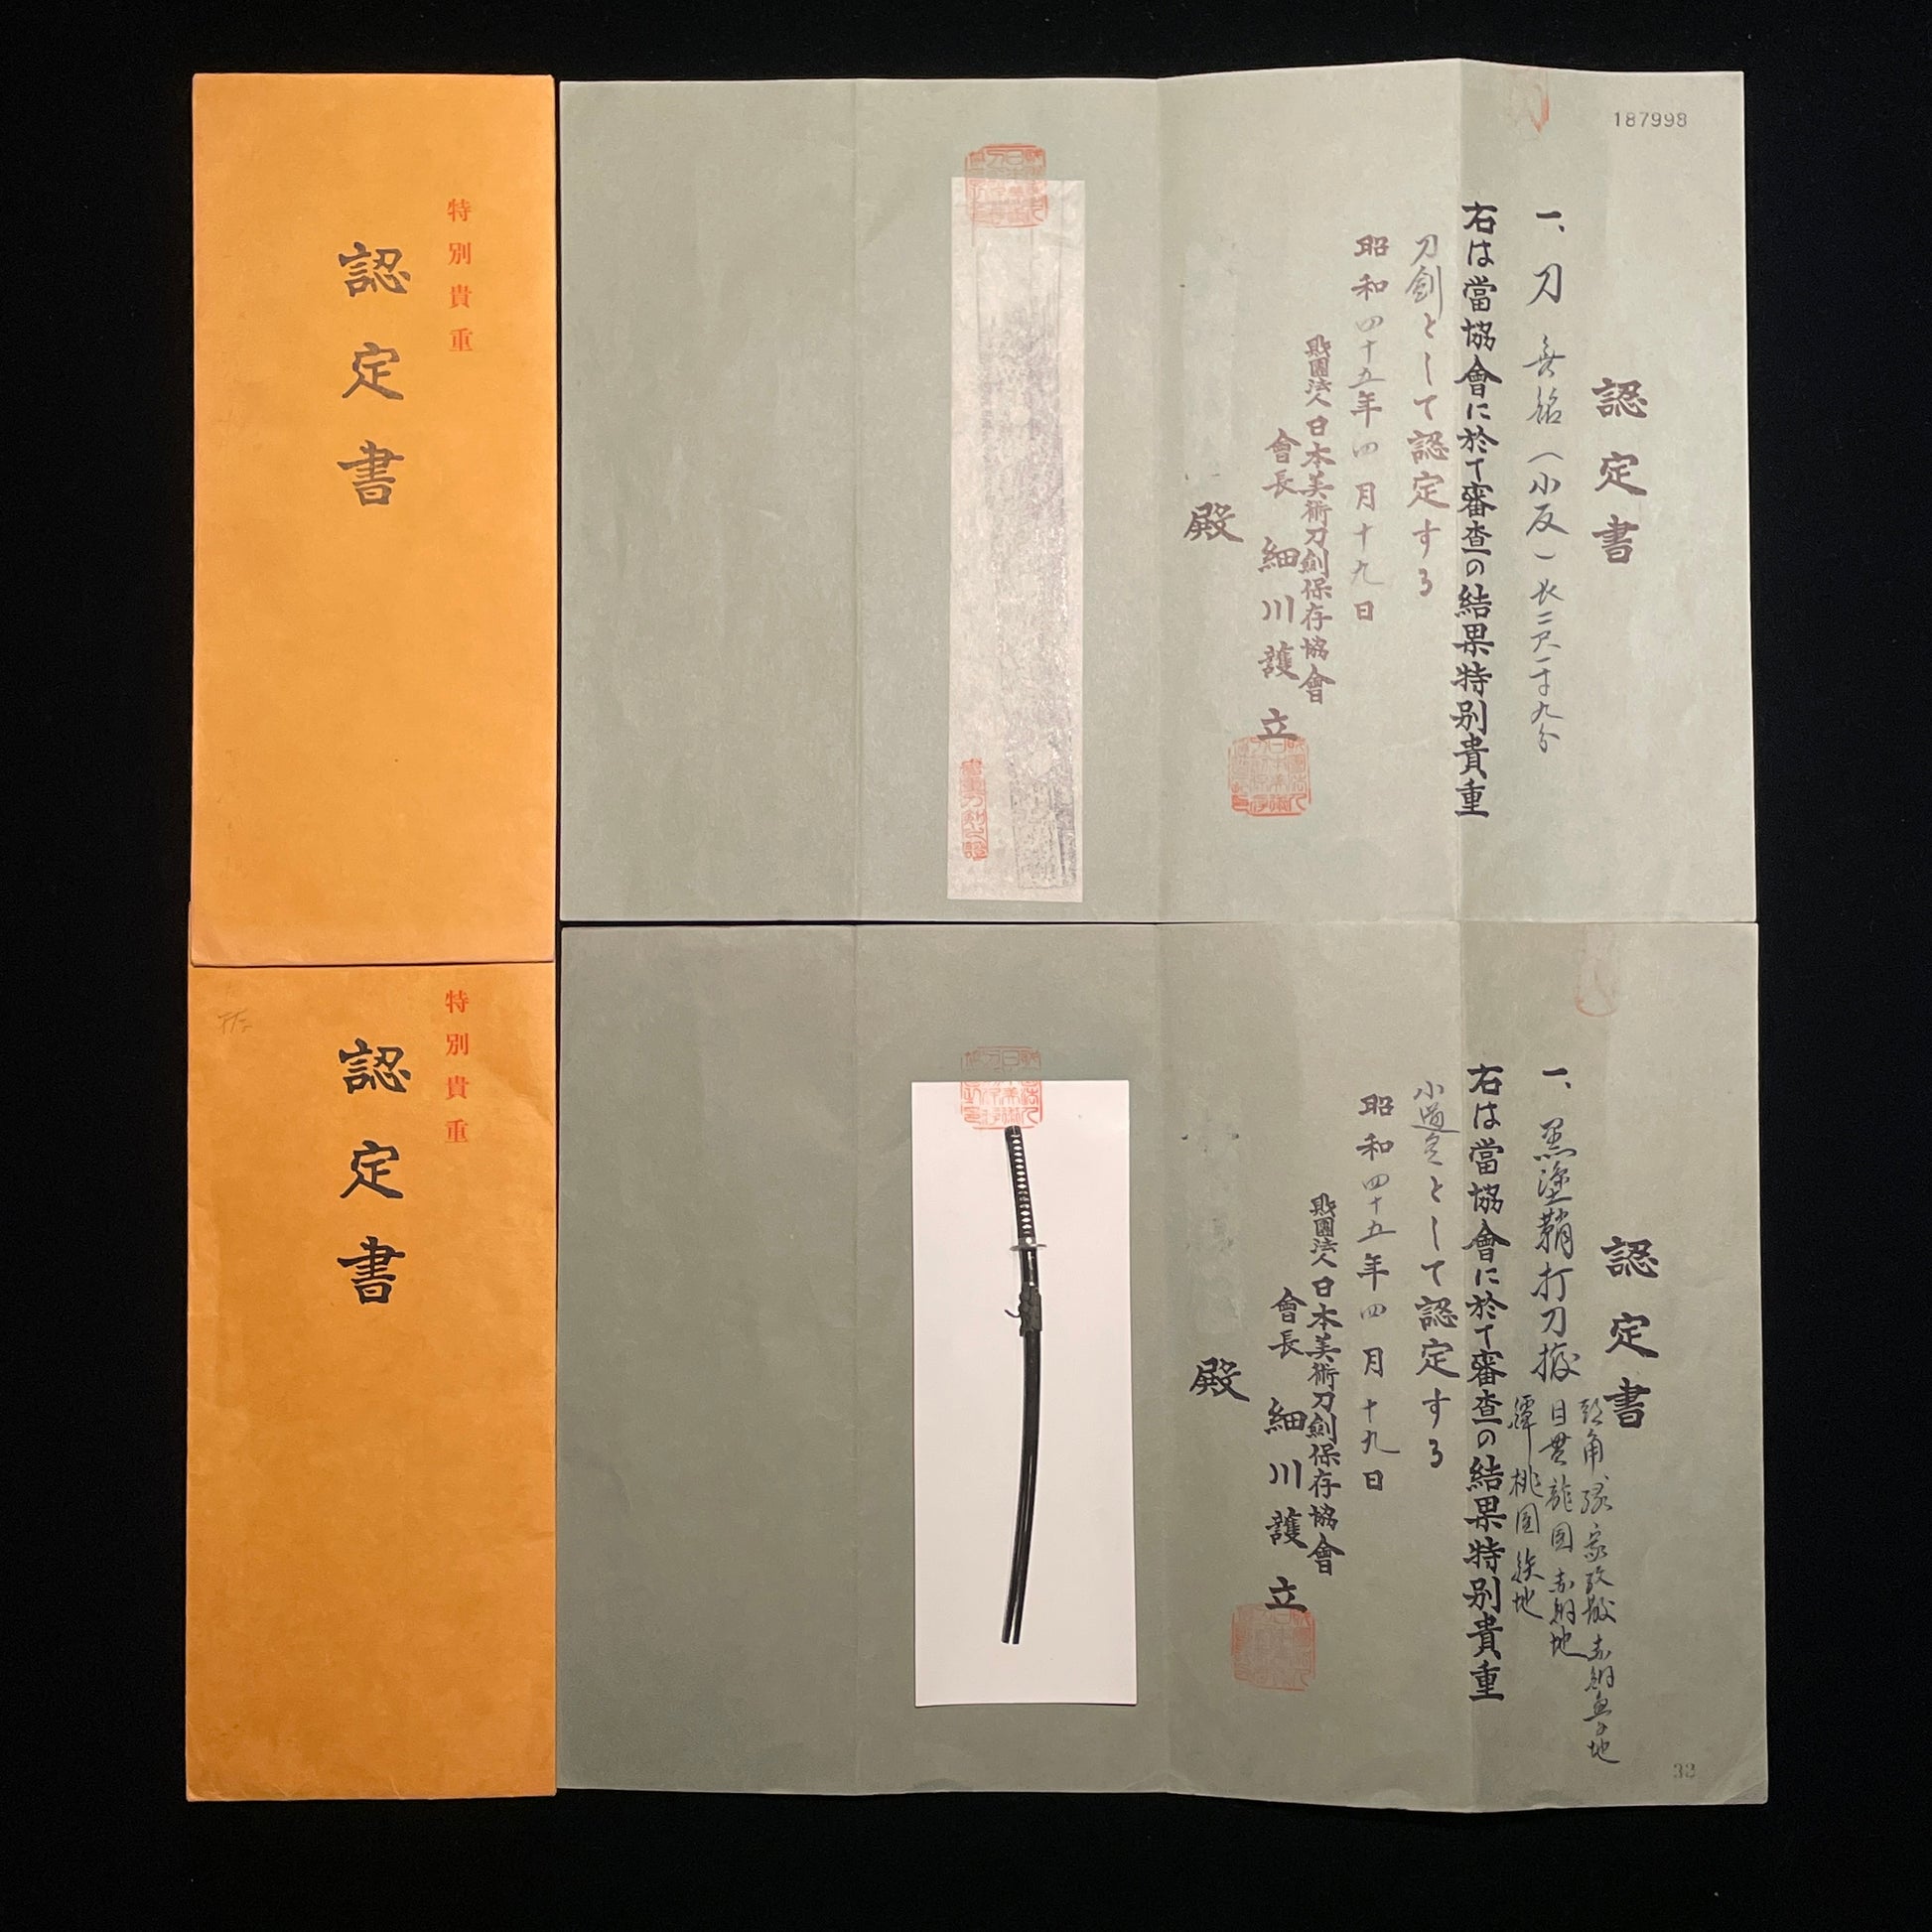 特別貴重
認定書
187998
認定書
一、刀 無銘(小反)長二尺一寸九分
右は當協會に於て審査の結果特別貴重
刀劍として認定する
昭和四十五年四月十九日
財團法人日本美術刀劍保存協會
會長 細川護立
殿
特別貴重
認定書
認定書
一、黒塗鞘打刀拵
頭角 縁 家紋散赤銅魚子地
目貫 龍図 赤銅地
鐔 桃図 鉄地
右は當協會に於て審査の結果特別貴重
小道具として認定する
昭和四十五年四月十九日
財團法人日本美術刀劍保存協會
會長 細川護立
殿
32